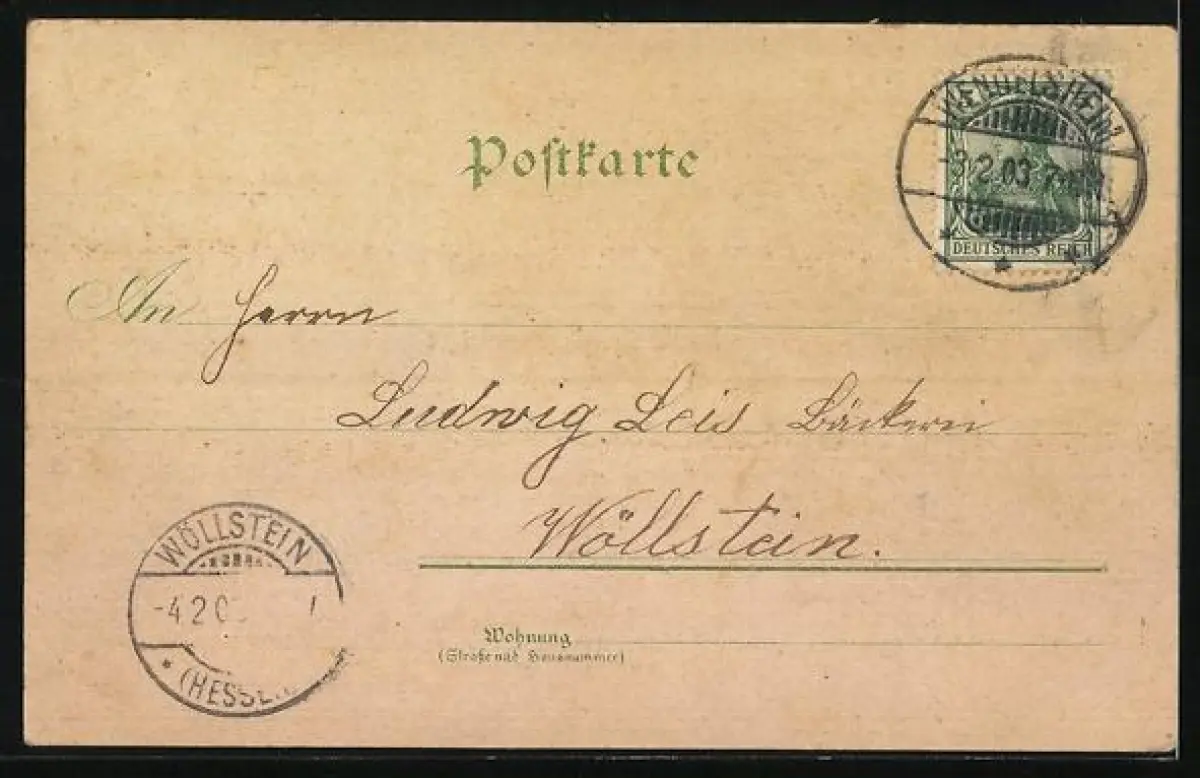 Postkarte
WENDELSHEIM
-3.2.03.7
DEUTSCHES REICH
An Herrn
Ludwig Leis Bäckerei
Wöllstein.
WÖLLSTEIN
-4.2.0
(HESSE
Wohnung
(Straße und Hausnummer)